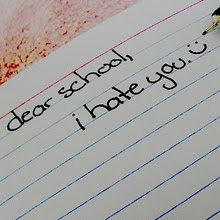 dear school,
i hate you. :)